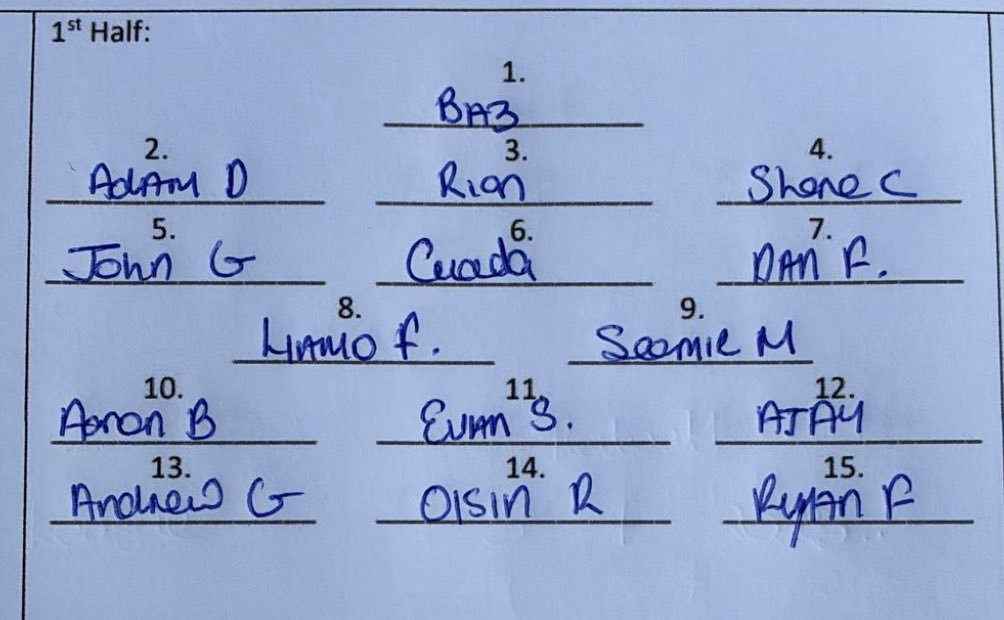 1st Half:
1.
BAZ
2. 3. 4.
Adam D Rian Shane C
5. 6. 7.
John G Cuada DAN F.
8. 9.
LIAMO F. Seamie M
10. 11. 12.
Aaron B EVAN S. AJAY
13. 14. 15.
Andrew G OISIN R RyAN F